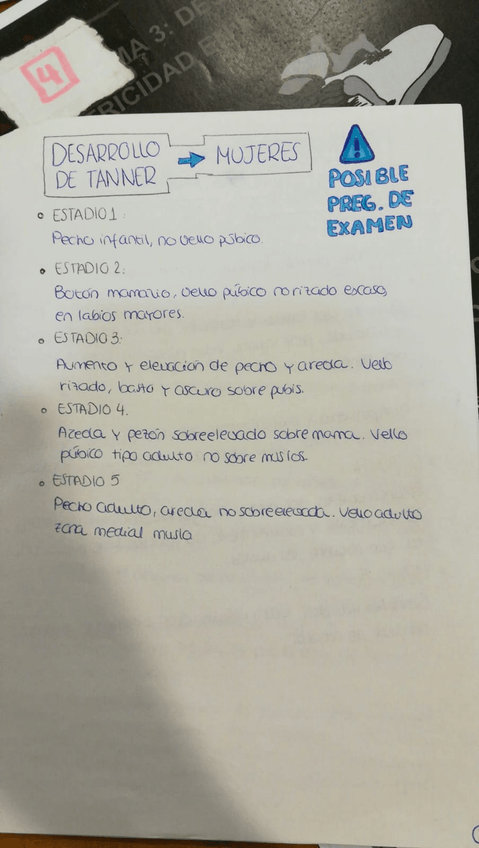 4
MA 3: DE
TRICIDAD E
DESARROLLO
DE TANNER
MUJERES
POSIBLE
PREG. DE
EXAMEN
ESTADIO 1.
Pecho infantil, no vello púbico.
ESTADIO 2:
Botón mamario, vello púbico no rizado escaso,
en labios mayores.
ESTADIO 3:
Aumento y elevación de pecho y areola. Vello
rizado, basto y oscuro sobre pubis.
ESTADIO 4.
Areola y pezón sobreelevado sobre mama. Vello
púbico tipo adulto no sobre muslos.
ESTADIO 5
Pecho adulto, areola no sobreelevada. Vello adulto
zona medial muslo